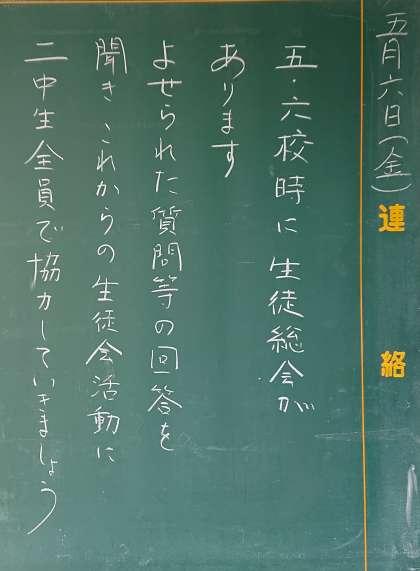 五月六日(金)
連絡
五・六校時に生徒総会が
あります
よせられた質問等の回答を
聞き、これからの生徒会活動に
二中生全員で協力していきましょう